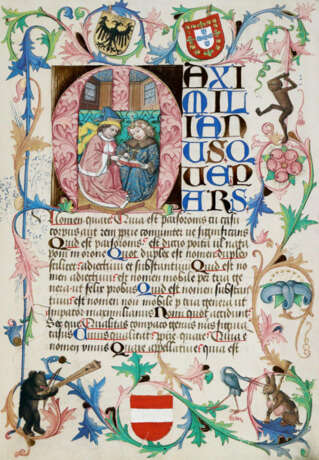 M AXI
MIL
IAN
USQ
VEP
ARS
Nomen quare Quia est pars oronis cu casu
corpus aut rem pprie comuniter ve significans
Quid est pars oronis est dictio
in orone Quot duplex est nomen duplex
scilicet adiectiuu et substantiuu Quid est no
men adiectiuu est nomen mobile p tria ge
nera ut felix probus Quid est nomen substan
tiuu est nomen non mobile p tria genera ut
imperator maximilianus Nomi quot accidunt
Sex que Qualitas compacio genus
casus Cuius qualitatis pprie quare Quia e
nomen unius Quare appellatiue quia est